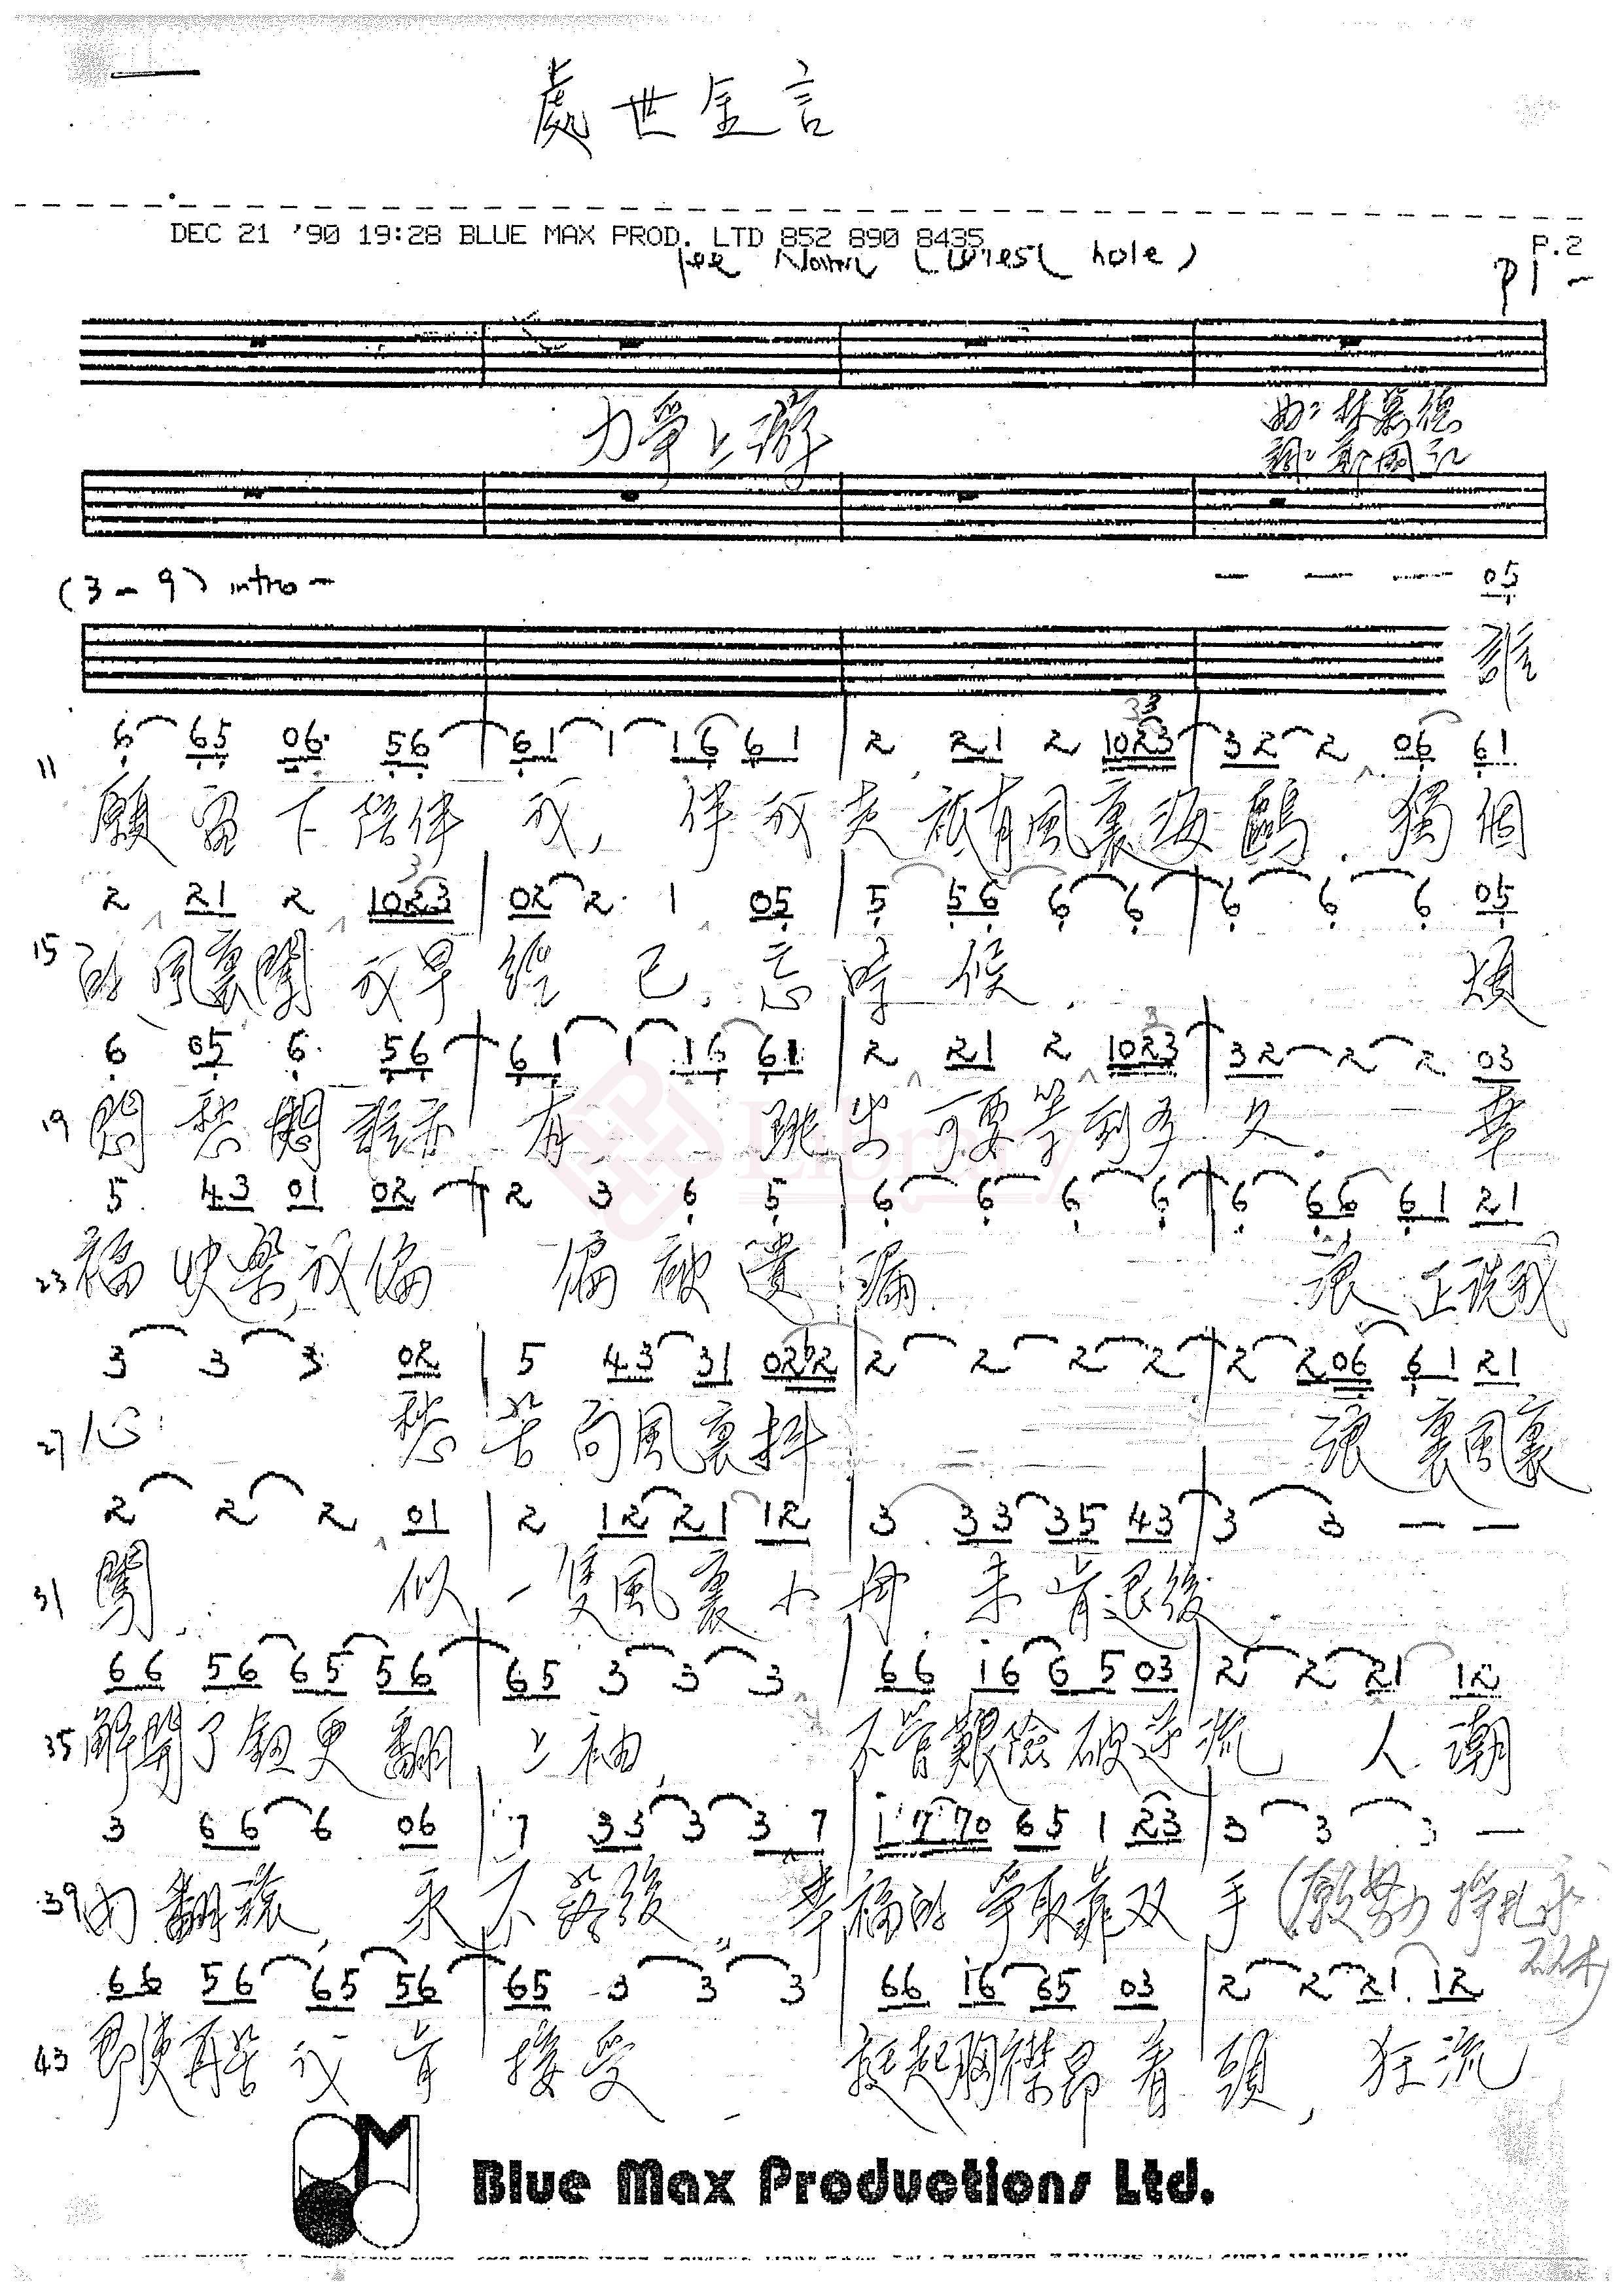 處世金言
DEC 21 '90 19:28 BLUE MAX PROD. LTD 852 890 8435 P.2
(West hole)
P1 -
力爭上游
曲: 林慕德
詞: 鄭國江
(3 - 9) intro -
05
誰
11 6 65 06. 56 | 61 1 16 61 | 2 21 2 1023 | 32 2 06 61
願留下陪伴我, 伴我走祇有風裏海鷗. 獨個
2 21 2 1023 | 02 2 1 05 | 5 56 6 6 | 6 6 6 05
15 的風裏闖我早經已忘時候. 煩
6 05 6. 56 | 61 1 16 61 | 2 21 2 1023 | 32 2 2 03
19 悶愁悶誰亦有, 跳出可要等到多久. 幸
5 43 01 02 | 2 3 6 5 | 6 6 6 6 | 6 66 61 21
23 福快樂,我偏偏被遺漏. 浪正說我
3 3 3 02 | 5 43 31 0232 | 2 2 2 2 | 2 206 61 21
27 心 愁苦向風裏抖 浪裏風裏
2 2 2 01 | 2 12 21 12 | 3 33 35 43 | 3 3 — —
31 闖. 似一隻風裏小舟. 未肯退後.
66 56 65 56 | 65 3 3 3 | 66 16 6 5 03 | 2 2 21 12
35 解開了鈕更翻上袖, 不管艱險破逆流 人潮
3 66 6 06 | 7 33 3 3 7 | 1 7 70 65 1 23 | 3 3 3 —
39 內翻滾, 永不落後. 幸福的爭取靠双手
66 56 65 56 | 65 3 3 3 | 66 16 65 03 | 2 2 21 12
43 即使再苦我肯接受 挺起胸襟昂着頭, 狂流
Library
Blue Max Productions Ltd.